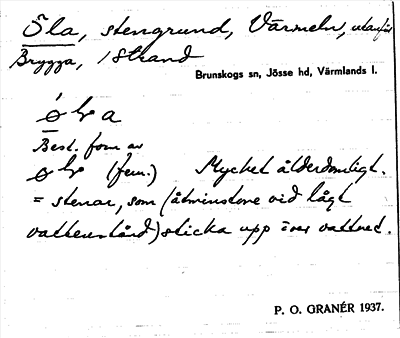 Öla, stengrund, Värmeln, utanför
Brygga, i Strand
Brunskogs sn, Jösse hd, Värmlands l.
a
Best. form av
(fem.) Mycket ålderdomligt.
= stenar, som (åtminstone vid lågt
vattenstånd) sticka upp över vattnet.
P. O. GRANÉR 1937.